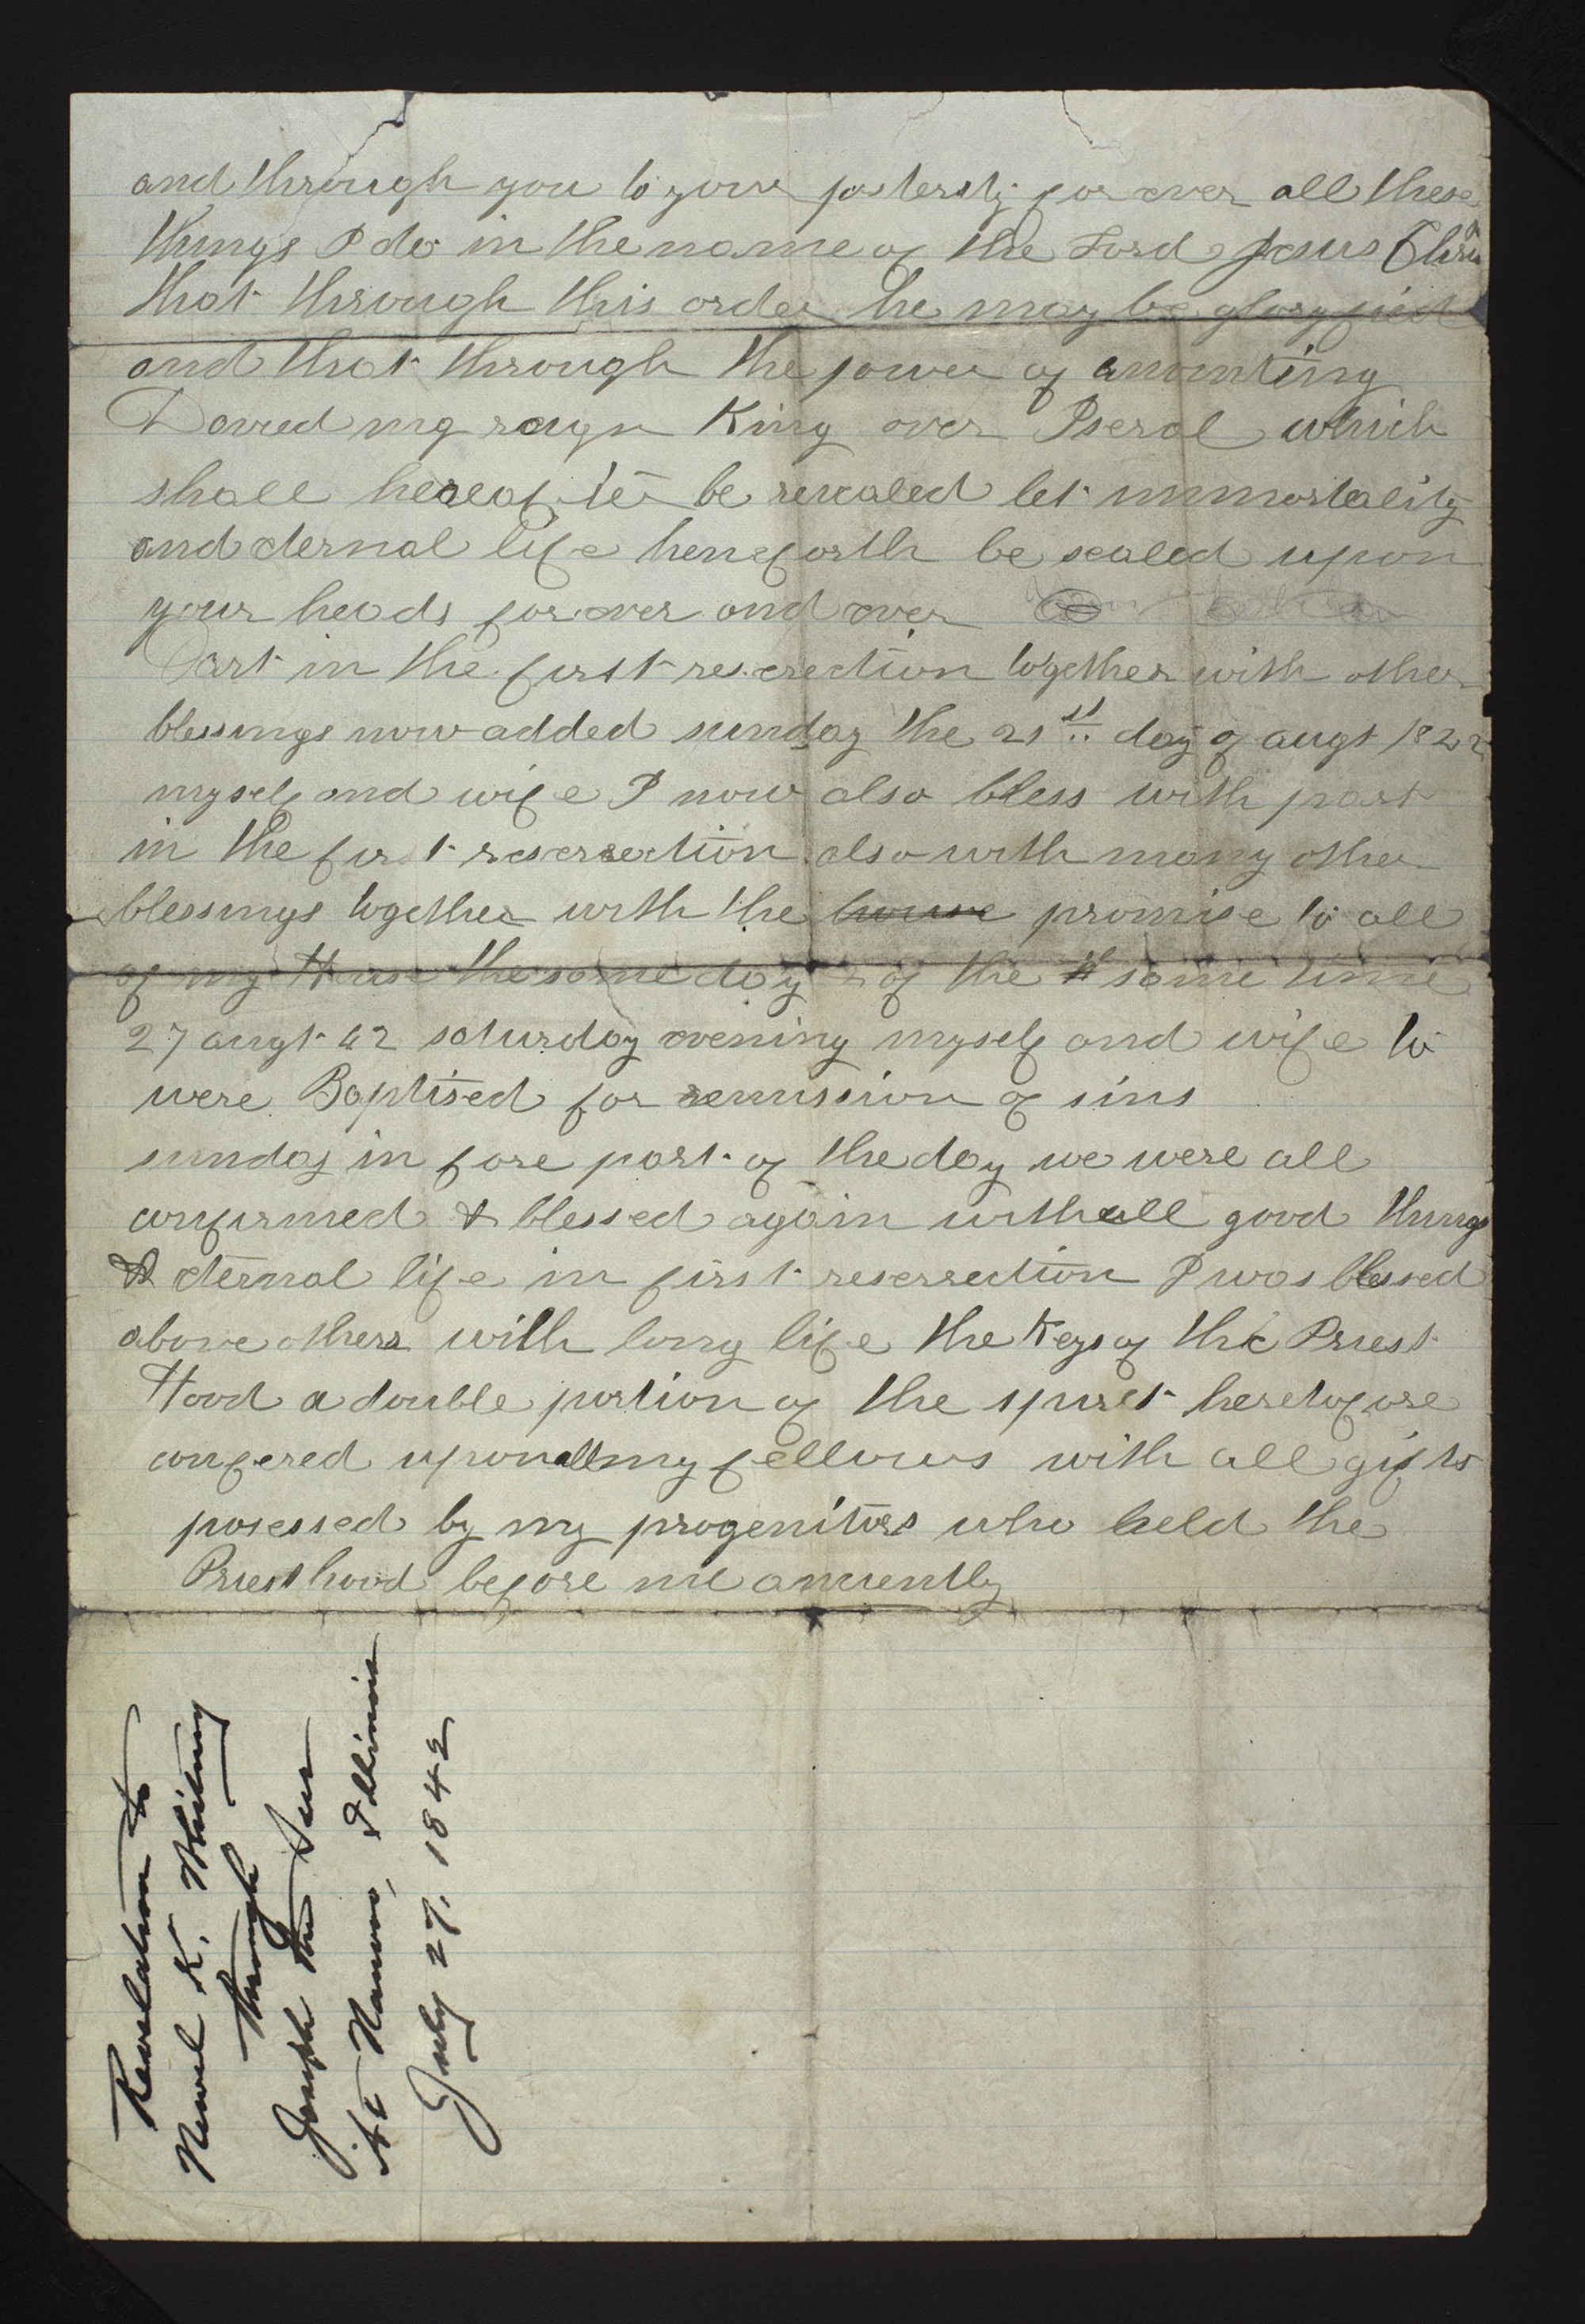 and through you to your posterity for ever all these
things I do in the name of the Lord Jesus Christ
that through this order he may be gloryfied
and that through the power of anointing
Daved may raign King over Iseral which
shall hereafter be revealed let immortality
and eternal life henceforth be sealed upon
your heads forever and ever
Part in the first reserection together with other
blessings now added sunday the 21st day of augt 182
myself and wife I now also bless with part
in the first reserrection also with many other
blessings together with the house promise to all
of my House the same day & of the same time
27 augt 42 saturday evening myself and wife to
were Baptised for remission of sins
sunday in fore part of the day we were all
confirmed & blessed again with all good things
& eternal life in first reserrection I was blessed
above others with long life the Keys of the Priest
Hood a double portion of the spiret heretofore
confered upon all my fellows with all gifts
posessed by my progenitors who held the
Priesthood before me anciently
Revelation to
Newel K. Whitney
through
Joseph the Seer
at Nauvoo, Illinois
July 27, 1842